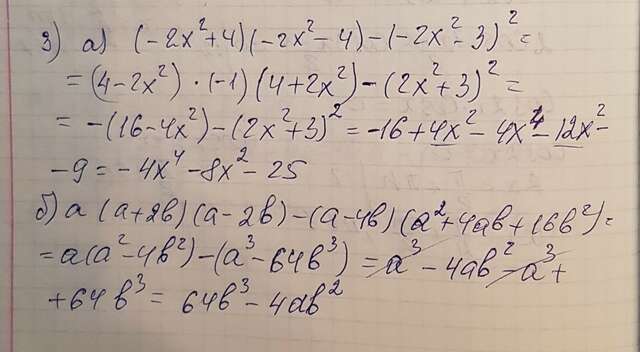 3) a) (-2x²+4)(-2x²-4)-(-2x²-3)²=
=(4-2x²)·(-1)(4+2x²)-(2x²+3)²=
=-(16-4x²)-(2x²+3)²=-16+4x²-4x⁴-12x²-
-9=-4x⁴-8x²-25
б) a(a+2b)(a-2b)-(a-4b)(a²+4ab+16b²)=
=a(a²-4b²)-(a³-64b³)=a³-4ab²-a³+
+64b³=64b³-4ab²